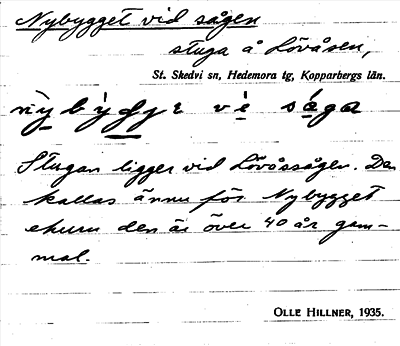 Nybygget vid sågen
stuga å Lövåsen,
St. Skedvi sn, Hedemora tg, Kopparbergs län.
nỳbỳgʒɪ vi sága
Stugan ligger vid Lövåssågen. Den
kallas ännu för Nybygget
ehuru den är över 40 år gam-
mal.
OLLE HILLNER, 1935.